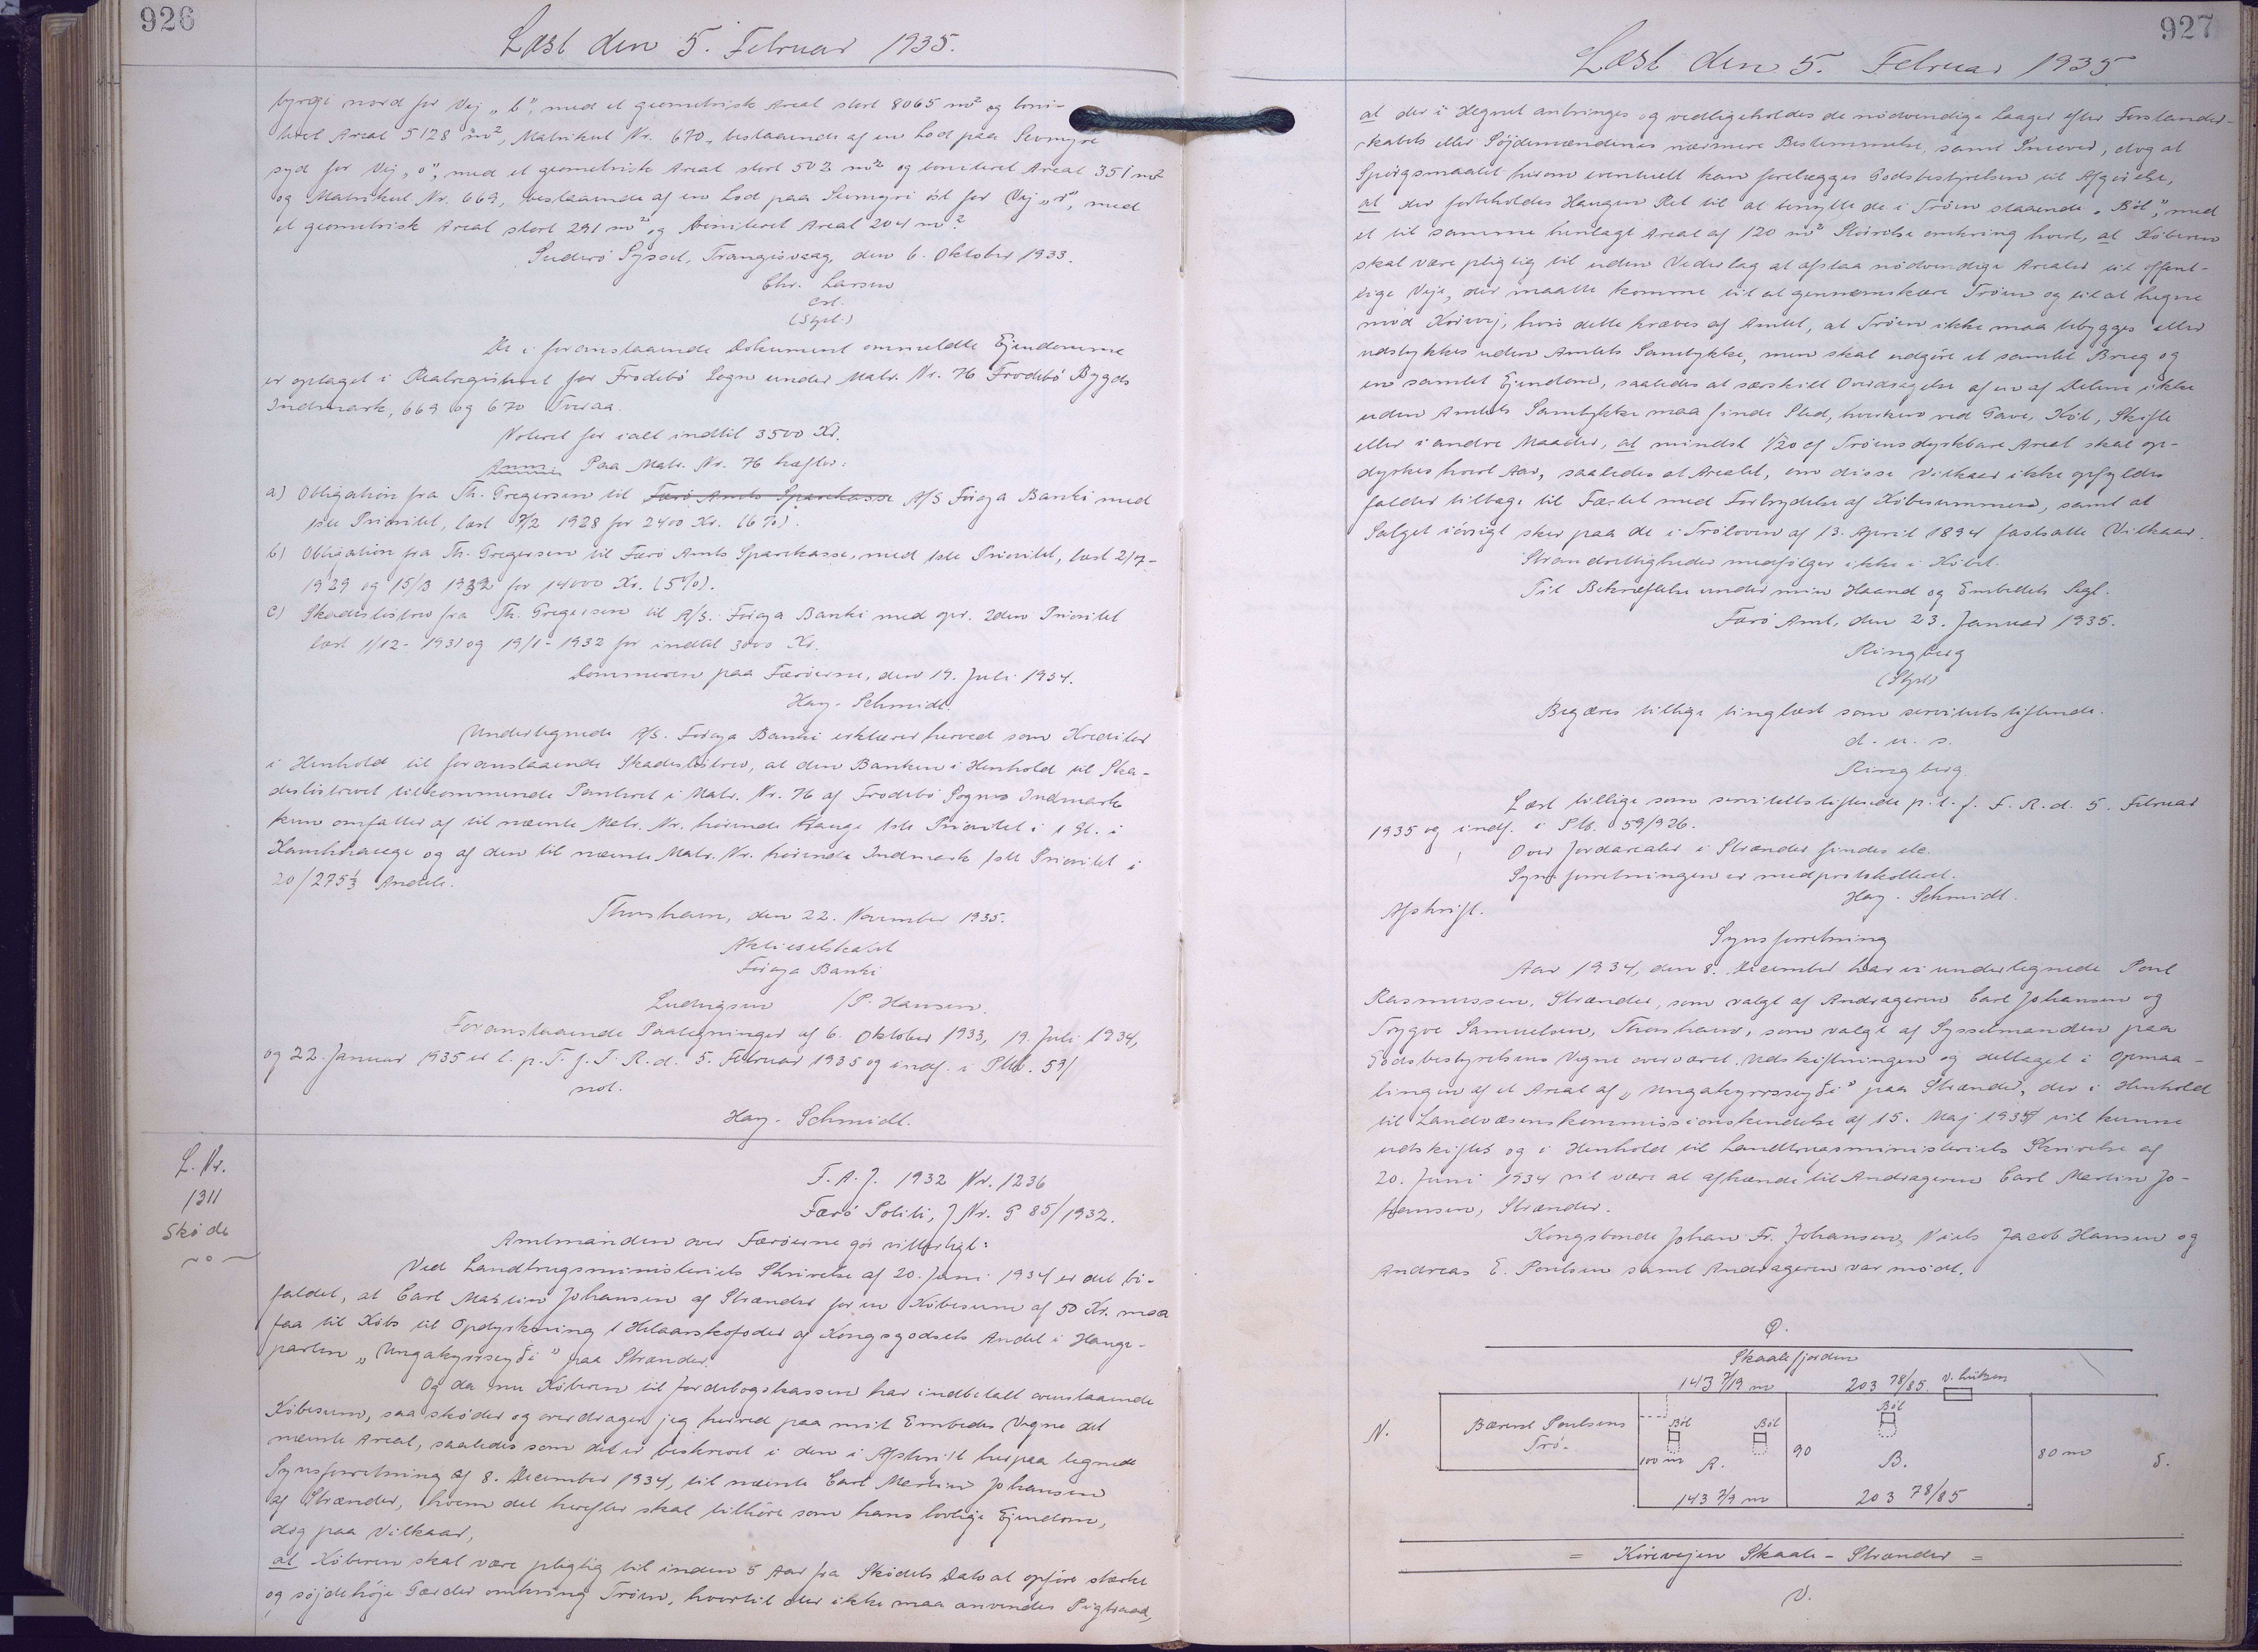 926
Læst den 5. Februar 1935.
byrgi nord for Vej „b", med et geometrisk Areal stort 8065 m² og boni-
teret Areal 5128 m², Matrikul Nr. 670, bestaaende af en Lod paa Sevmyre
syd for Vej „o", med et geometrisk Areal stort 502 m² og boniteret Areal 351 m²
og Matrikul Nr. 669, bestaaende af en Lod paa Sevmyri øst for Vej „r", med
et geometrisk Areal stort 291 m² og boniteret Areal 204 m².
Suderø Syssel, Trangisvaag, den 6. Oktober 1933.
Chr. Larsen
cst.
(Segl.)
De i foranstaaende Dokument ommeldte Ejendomme
er optaget i Realregistret for Frodebø Sogn under Matr. Nr. 76 Frodebø Bygds
Indmark, 669 og 670 Tveraa.
Noteret for ialt indtil 3500 Kr.
Anm: Paa Matr. Nr. 76 hæfter:
a) Obligation fra Th. Gregersen til Færø Amts Sparekasse A/S Føroya Banki med
1ste Prioritet, læst 7/2 1928 for 2400 Kr. (6%).
b) Obligation fra Th. Gregersen til Færø Amts Sparekasse, med 1ste Prioritet, læst 2/7-
1929 og 15/3 1932 for 14000 Kr. (5%).
c) Skadesløsbrev fra Th. Gregersen til A/S. Føroya Banki med opr. 2den Prioritet
læst 1/12- 1931 og 19/1- 1932 for indtil 3000 Kr.
Dommeren paa Færøerne, den 19. Juli 1934.
Hay-Schmidt.
Undertegnede A/S. Føroya Banki erklærer herved som Kreditor
i Henhold til foranstaaende Skadesløsbrev, at den Banken i Henhold til Ska-
desløsbrevet tilkommende Panteret i Matr. Nr. 76 af Frodebø Sogns Indmark
kun omfatter af til nævnte Matr. Nr. hørende Hauge 1ste Prioritet i 1 Gl. i
Kambhauge og af den til nævnte Matr. Nr. hørende Indmark 1ste Prioritet i
20/275⅓ Andele.
Thorshavn, den 22. November 1935.
Aktieselskabet
Føroya Banki
Ludvigsen /P. Hansen.
Foranstaaende Paategninger af 6. Oktober 1933, 19. Juli 1934,
og 22. Januar 1935 er l. p. T. f. F. R. d. 5. Februar 1935 og indf. i Ptk. 59/
not.
Hay-Schmidt.
L. Nr.
1311
Skøde
F. A. J. 1932 Nr. 1236
Færø Politi, J Nr. G 85/1932.
Amtmanden over Færøerne gør vitterligt:
Ved Landbrugsministeriets Skrivelse af 20. Juni 1934 er det bi-
faldet, at Carl Martin Johansen af Strænder for en Købesum af 50 Kr. maa
faa til Købs til Opdyrkning 1 Helaarskofoder af Kongsgodsets Andel i Hauge-
parten „Ungakyrrseyði" paa Strænder.
Og da nu Køberen til Jordebogskassen har indbetalt ovenstaaende
Købesum, saa skøder og overdrager jeg herved paa mit Embedes Vegne det
nævnte Areal, saaledes som det er beskrevet i den i Afskrift herpaa tegnede
Synsforretning af 8. December 1934, til nævnte Carl Martin Johansen
af Strænder, hvem det herefter skal tilhøre som hans lovlige Ejendom,
dog paa Vilkaar,
at Køberen skal være pligtig til inden 5 Aar fra Skødets Dato at opføre stærke
og søjdehøje Gærder omkring Trøen, hvortil der ikke maa anvendes Pigtraad,
927
Læst den 5. Februar 1935
at der i Hegnet anbringes og vedligeholdes de nødvendige Laager efter Forstander-
skabets eller Søjdemændenes nærmere Bestemmelse, samt Snever, dog at
Spørgsmaalet herom eventuelt kan forelægges Godsbestyrelsen til Afgørelse,
at der forbeholdes Haugen Ret til at benytte de i Trøen staaende „Ból", med
et til samme henlagt Areal af 120 m² Størrelse omkring hvert, at Køberen
skal være pligtig til uden Vederlag at afstaa nødvendige Arealer til offent-
lige Veje, der maatte komme til at gennemskære Trøen og til at hegne
mod Kørevej, hvis dette kræves af Amtet, at Trøen ikke maa bebygges eller
udstykkes uden Amtets Samtykke, men skal udgøre et samlet Brug og
en samlet Ejendom, saaledes at særskilt Overdragelse af en af Delene ikke
uden Amtets Samtykke maa finde Sted, hverken ved Gave, Køb, Skifte
eller i andre Maader, at mindst 1/20 af Trøens dyrkbare Areal skal op-
dyrkes hvert Aar, saaledes at Arealet, om disse Vilkaar ikke opfyldes
falder tilbage til Fæstet med Fortrydelse af Købesummen, samt at
Salget iøvrigt sker paa de i Trøloven af 13. April 1894 fastsatte Vilkaar.
Strandrettigheder medfølger ikke i Købet.
Til Bekræftelse under min Haand og Embedets Segl.
Færø Amt, den 23. Januar 1935.
Ringberg
(Segl)
Begæres tillige tinglæst som servitutstiftende.
d. u. s.
Ringberg.
Læst tillige som servitutstiftende p. t. f. F. R. d. 5. Februar
1935 og indf. i Ptk. 59/926.
Over Jordarealer i Strænder findes etc.
Synsforretningen er medprotokolleret.
Hay-Schmidt.
Afskrift.
Synsforretning
Aar 1934, den 8. December har vi undertegnede Poul
Rasmussen, Strænder, som valgt af Andrageren Carl Johansen og
Trygve Samuelsen, Thorshavn, som valgt af Sysselmanden paa
Godsbestyrelsens Vegne overværet Udskiftningen og deltaget i Opmaa-
lingen af et Areal af „Ungakyrrseyði" paa Strænder, der i Henhold
til Landvæsenskommissionskendelse af 15. Maj 1934 vil kunne
udskiftes og i Henhold til Landbrugsministeriets Skrivelse af
20. Juni 1934 vil være at afhænde til Andrageren Carl Martin Jo-
hansen, Strænder.
Kongsbonde Johan Fr. Johansen, Niels Jacob Hansen og
Andreas E. Poulsen samt Andrageren var mødt.
Ø.
Skaalefjorden
143 7/19 m
203 78/85
N.
Bærent Poulsens
Trø.
Ból
Ból
Ból
100 m
A.
90
B.
80 m
S.
143 7/9 m
203 78/85
= Kørevejen Skaale - Strænder =
V.